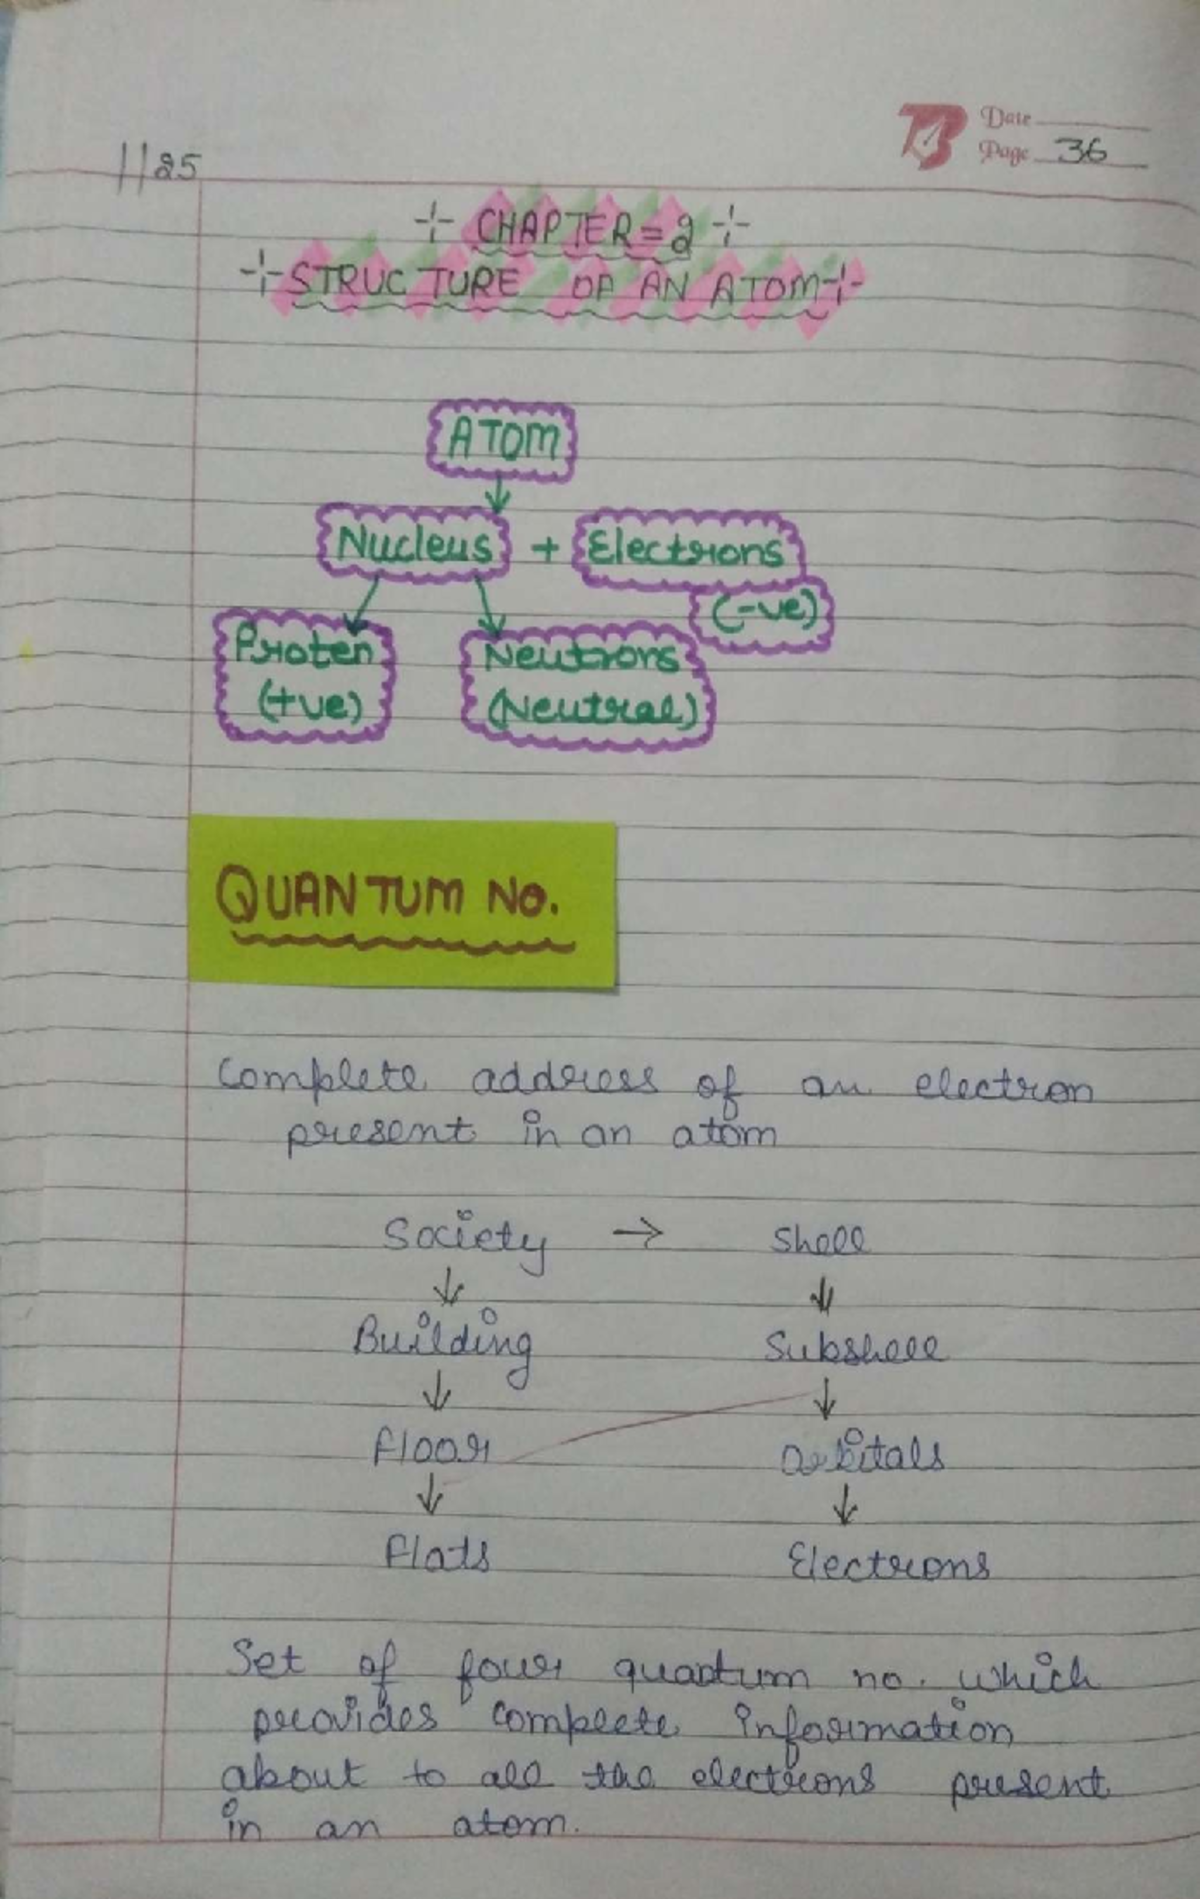 Date
Page 36
1/25
CHAPTER = 2
STRUCTURE OF AN ATOM
ATOM
Nucleus + Electrons
(-ve)
Proten Neutrons
(+ve) (Neutral)
QUANTUM NO.
Complete address of an electron
present in an atom
Society → Shell
↓ ↓
Building Subshell
↓ ↓
Floor Orbitals
↓ ↓
Flats Electrons
Set of four quantum no. which
provides complete information
about to all the electrons present
in an atom.